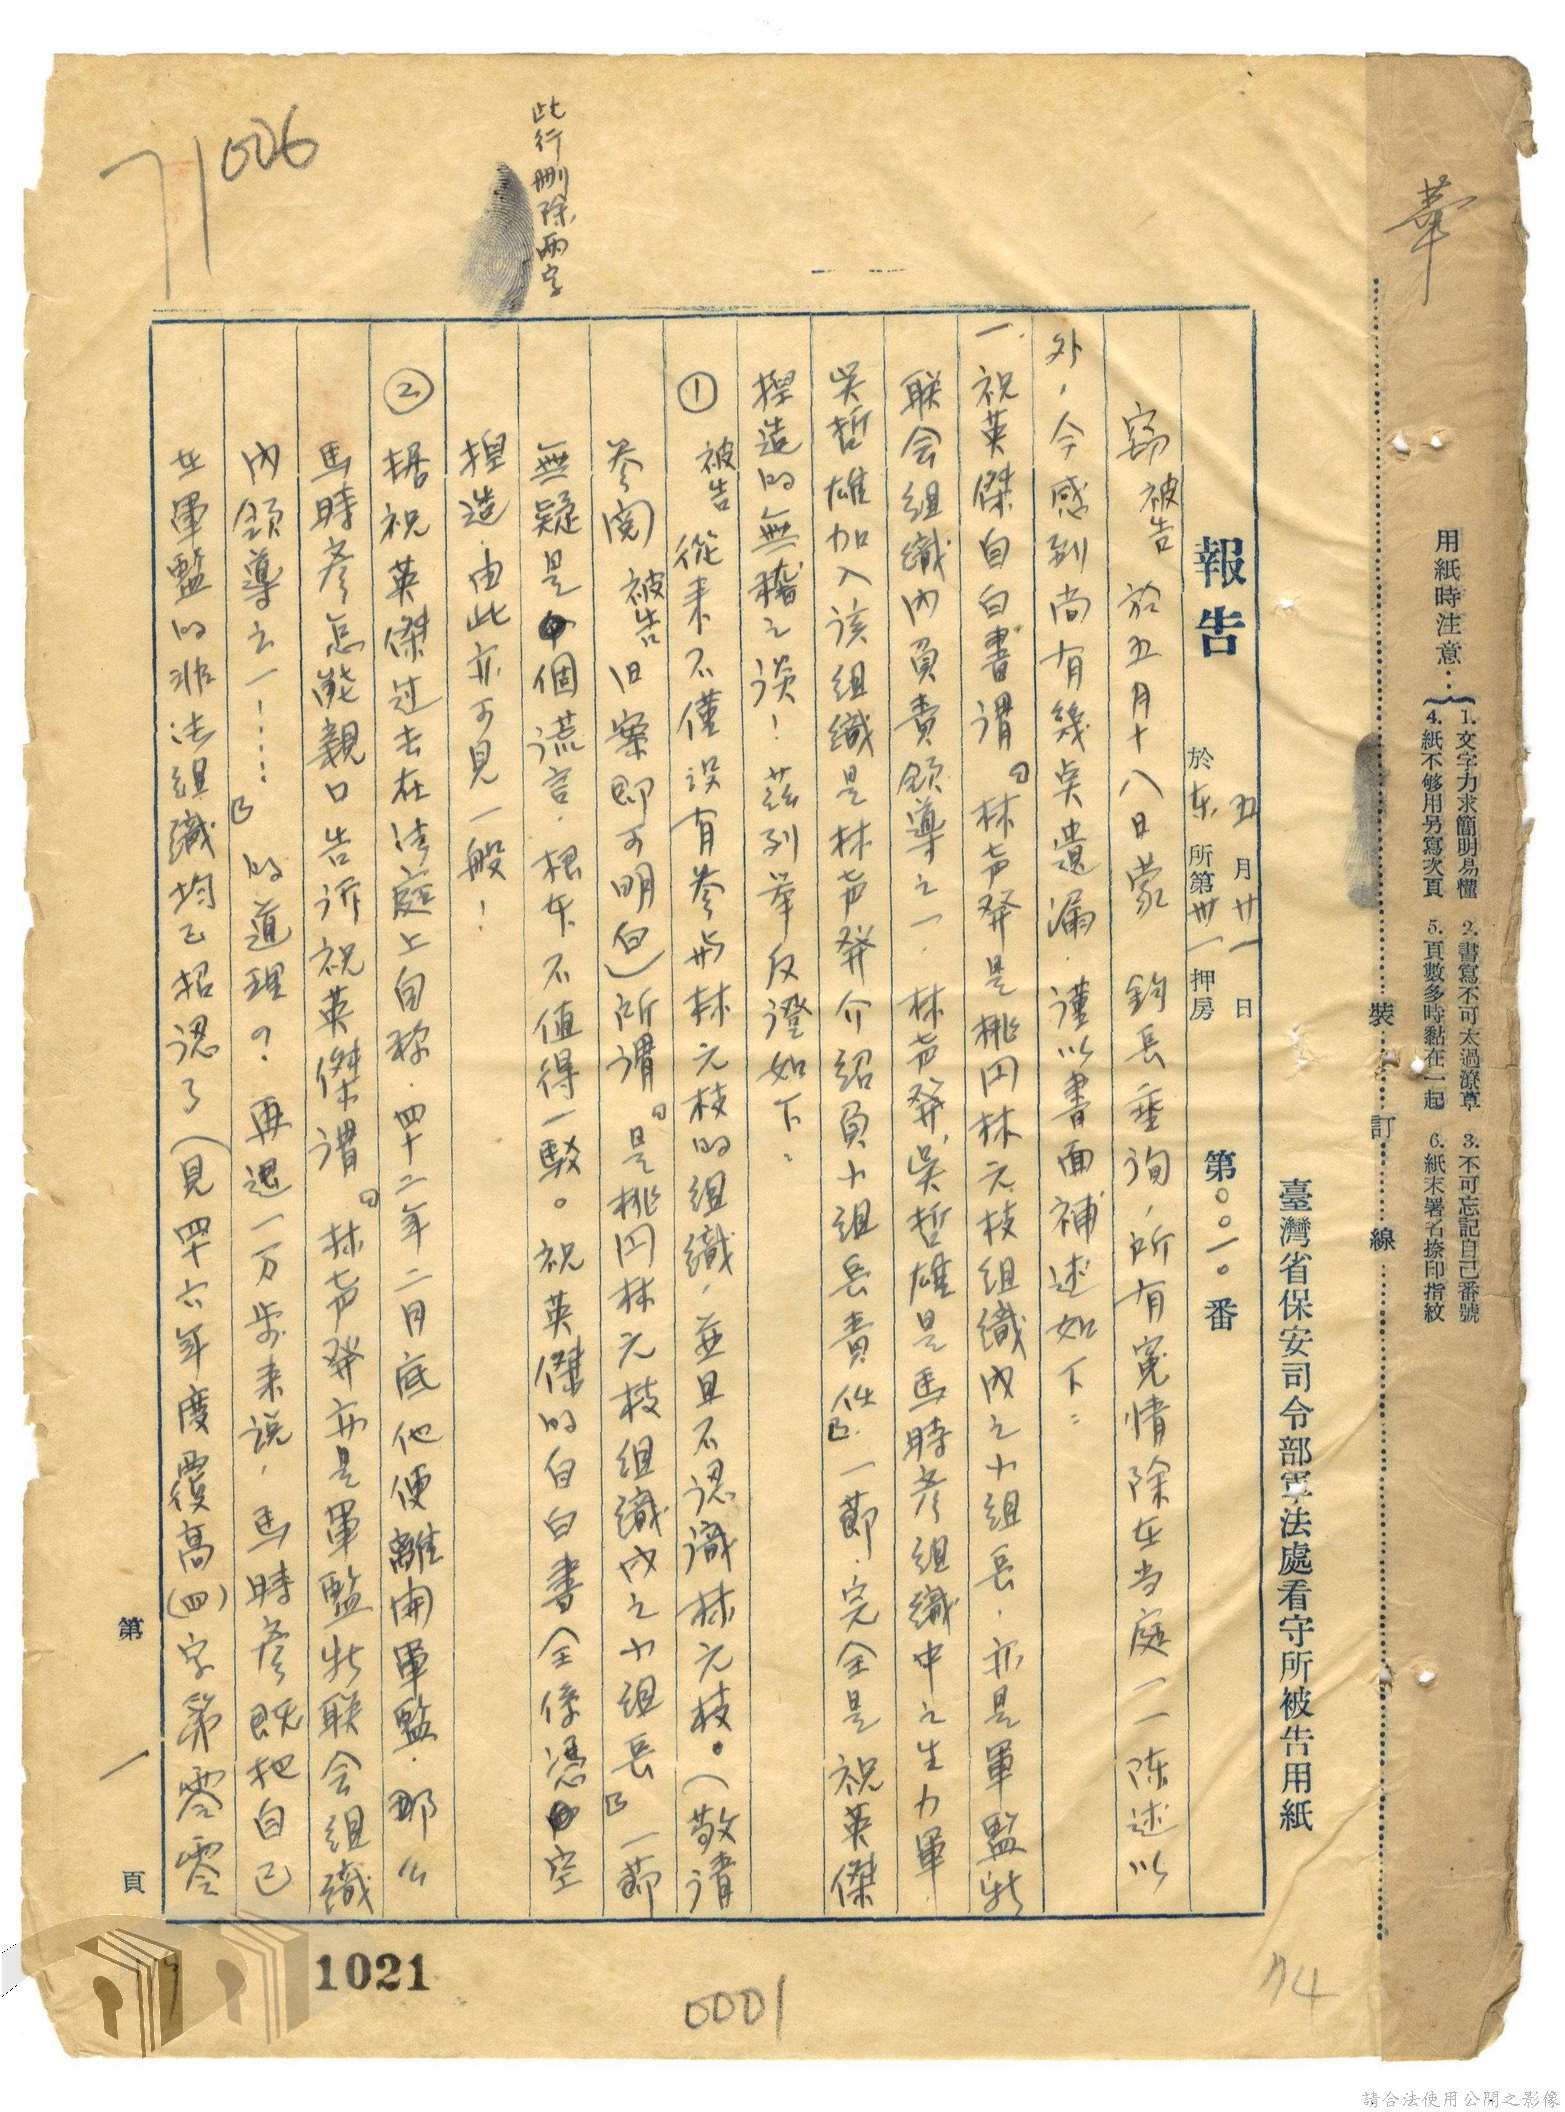 華
用紙時注意：
1. 文字力求簡明易懂 2. 書寫不可太過潦草 3. 不可忘記自己番號
4. 紙不够用另寫次頁 5. 頁數多時黏在一起 6. 紙末署名捺印指紋
裝 訂 線
臺灣省保安司令部軍法處看守所被告用紙
報告 五月廿一日
於东所第卅一押房 第〇〇一〇番
窃被告於五月十八日蒙 鈞長垂詢，所有冤情除在当庭一一陈述以
外，今感到尚有幾点遺漏．謹以書面補述如下：
一．祝英傑自白書謂『林声発是桃园林元枝組織內之小組長．亦是軍監新
联会組織內負責領導之一．林声発，吳哲雄是馬時彥組織中之生力軍．
吳哲雄加入該組織是林声発介紹負小組長責任』．一節．完全是祝英傑
揑造的無稽之谈！茲列举反證如下：
① 被告從来不僅沒有參與林元枝的組織，並且不認識林元枝。（敬请
參閱被告旧案即可明白）所謂『是桃园林元枝組織內之小組長』一節
無疑是個謊言．根本不值得一駁。祝英傑的自白書全係憑空
揑造．由此亦可見一般！
此行刪除兩字
② 据祝英傑过去在法庭上自称．四十二年二月底他便離開軍監．那么
馬時彥怎能親口告诉祝英傑謂『林声発亦是軍監新联会組織
內領導之一！……』的道理？再退一万步来说．馬時彥既把自己
在軍監的非法組織均已招認了（見四十六年度覆高（四）字第零零
第一頁
71 006
1021
0001
74
請合法使用公開之影像